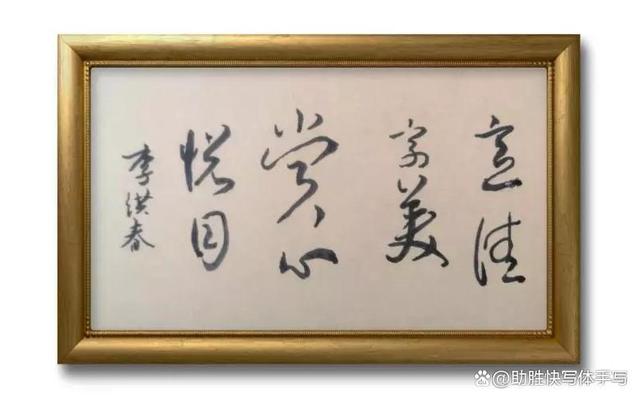 意佳
字美
赏心
悦目
李洪春
@助胜快写体手写